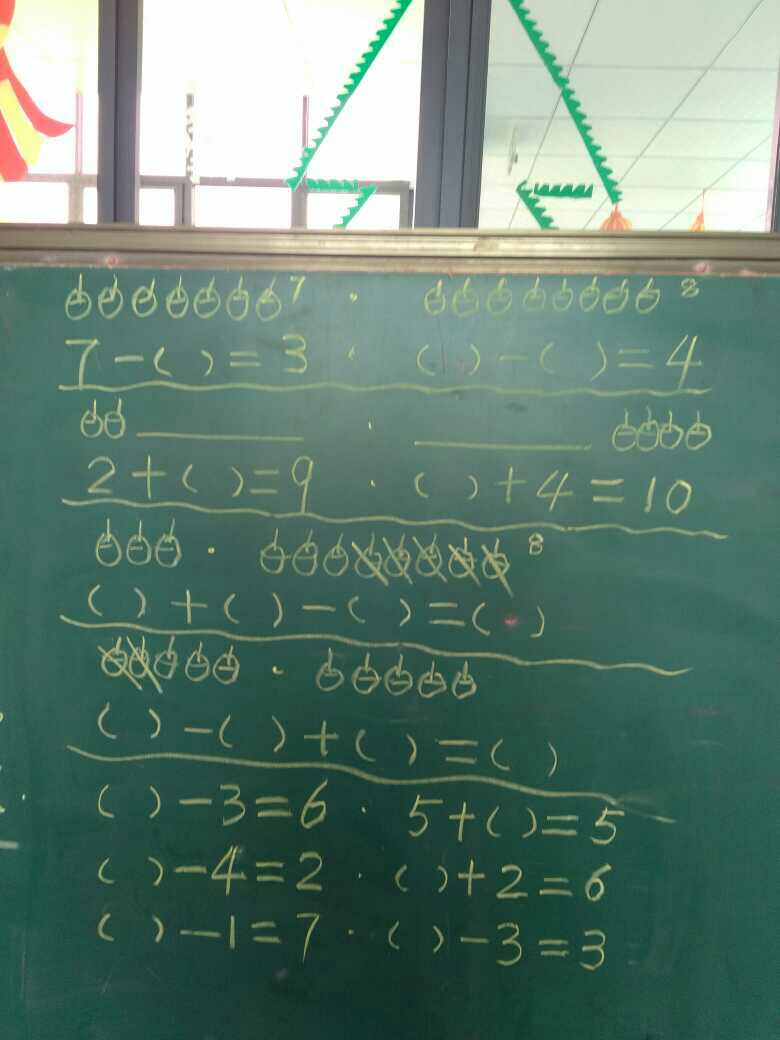 7 · 8
7-( )=3 · ( )-( )=4
·
2+( )=9 · ( )+4=10
· 8
( )+( )-( )=( )
·
( )-( )+( )=( )
( )-3=6 · 5+( )=5
( )-4=2 · ( )+2=6
( )-1=7 · ( )-3=3